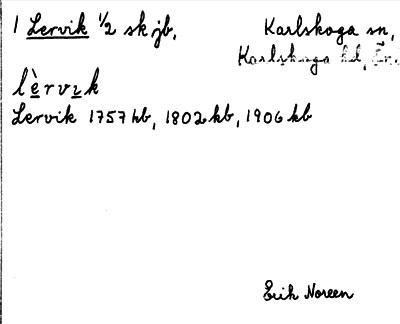 1 Lervik ½ sk jb, Karlskoga sn,
Karlskoga hd,
lèrvɪk
Lervik 1757 hb, 1802 kb, 1906 kb
Erik Noreen